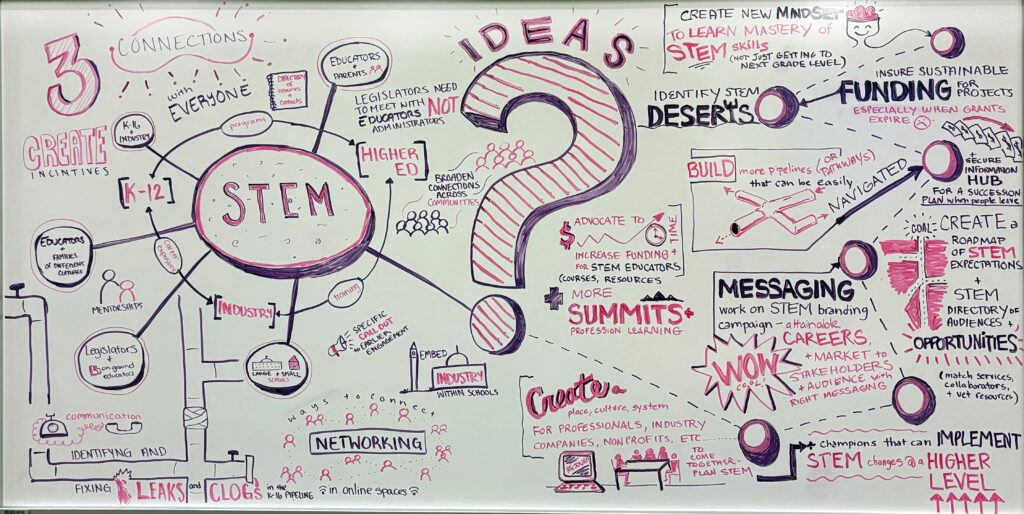 3
CONNECTIONS
with
EVERYONE
DIRECTORY
of
resources
+ contacts
EDUCATORS
+
PARENTS
LEGISLATORS NEED
TO MEET WITH NOT
EDUCATORS
ADMINISTRATORS
CREATE
INCINTIVES
K-16
+
INDUSTRY
programs
[K-12]
[HIGHER
ED]
STEM
BROADEN
CONNECTIONS
ACROSS
COMMUNITIES
EDUCATORS
+
FAMILIES
OF DIFFERENT
CULTURES
career
exposure
MENTORSHIPS
[INDUSTRY]
training
Legislators
+
on ground
educators
LARGE + SMALL
SCHOOLS
SPECIFIC
CALL OUT
TO EARLIER
ENGAGEMENT
EMBED
INDUSTRY
WITHIN SCHOOLS
communication
IDENTIFYNG AND
FIXING LEAKS and CLOGS
in the
K-16 PIPELINE
ways to connect
NETWORKING
in online spaces
IDEAS
?
CREATE NEW MINDSET
TO LEARN MASTERY OF
STEM skills
(NOT JUST GETTING TO
NEXT GRADE LEVEL)
IDENTIFY STEM
DESERTS
INSURE SUSTAINABLE
FUNDING FOR
PROJECTS
ESPECIALLY WHEN GRANTS
EXPIRE
BUILD more pipelines (OR
PATHWAYS)
that can be easily
NAVIGATED
+
SECURE
INFORMATION
HUB
FOR A SUCCESSION
PLAN when people leave
$ ADVOCATE TO
TIME
INCREASE FUNDING +
FOR STEM EDUCATORS
(COURSES, RESOURCES
+ MORE
SUMMITS +
PROFESSION LEARNING
GOAL: CREATE a
ROADMAP
OF STEM
EXPECTATIONS
+
STEM
DIRECTORY OF
AUDIENCES +
OPPORTUNITIES
(match services,
collaborators,
+ vet resources)
MESSAGING
work on STEM branding
campaign - attainable
CAREERS,
+ MARKET to
STAKEHOLDERS
+ AUDIENCE with
RIGHT MESSAGING
WOW
COOL
Create a
place, culture, system
FOR PROFESSIONALS, INDUSTRY
COMPANIES, NONPROFITS, ETC...
TO
COME
TOGETHER
PLAN STEM
+ champions that can IMPLEMENT
STEM changes @ a HIGHER
LEVEL